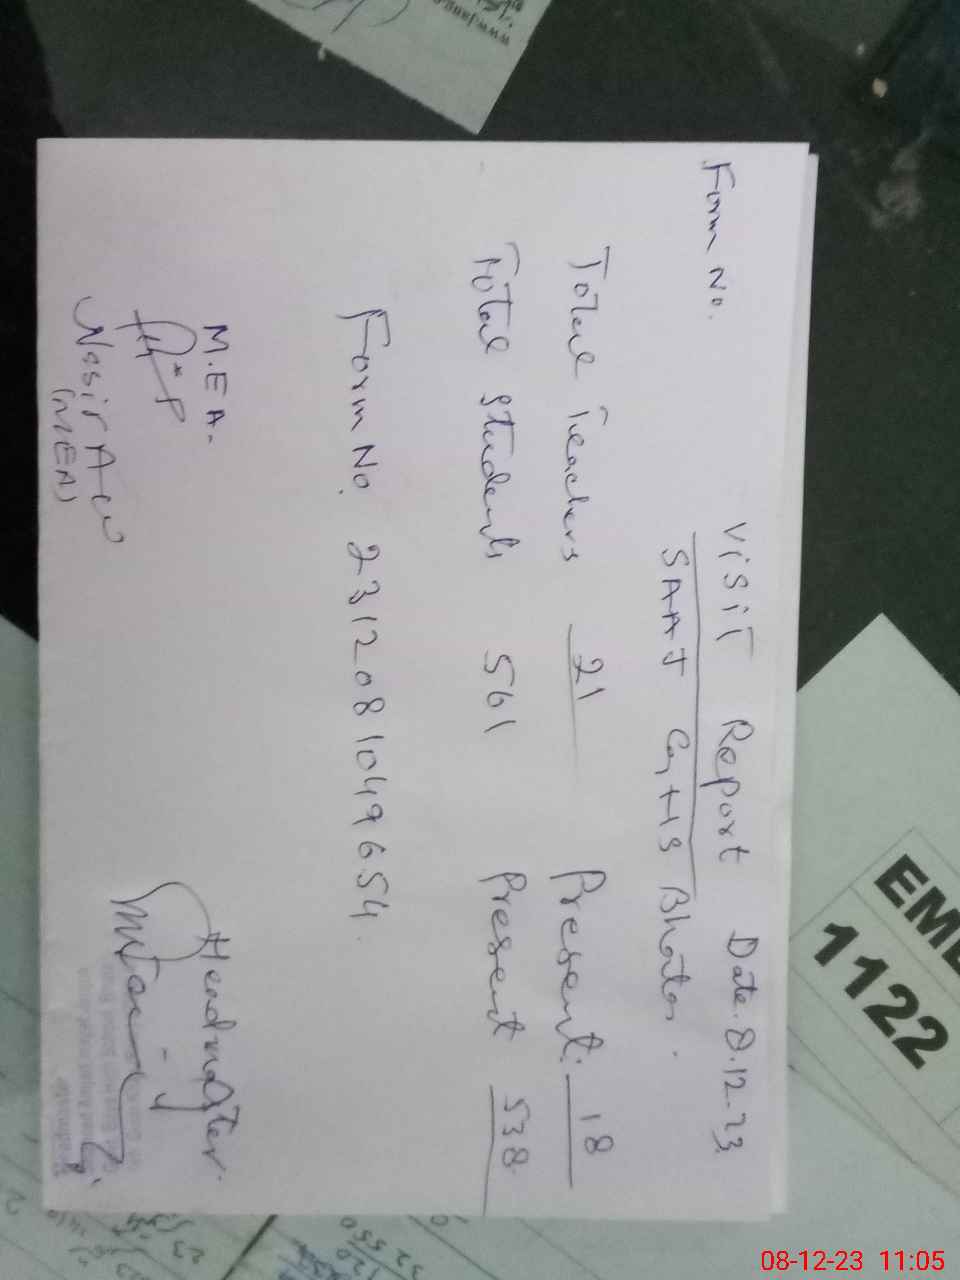 Form No.
Visit Report Date. 8.12.23
SAAJ GHS Bhata.
Total Teachers 21 Present: 18
Total Students 561 Present 538
Form No. 2312081049654.
M.E A.
Headmaster.
Nasir A
(MEA)
EME
1122
08-12-23 11:05